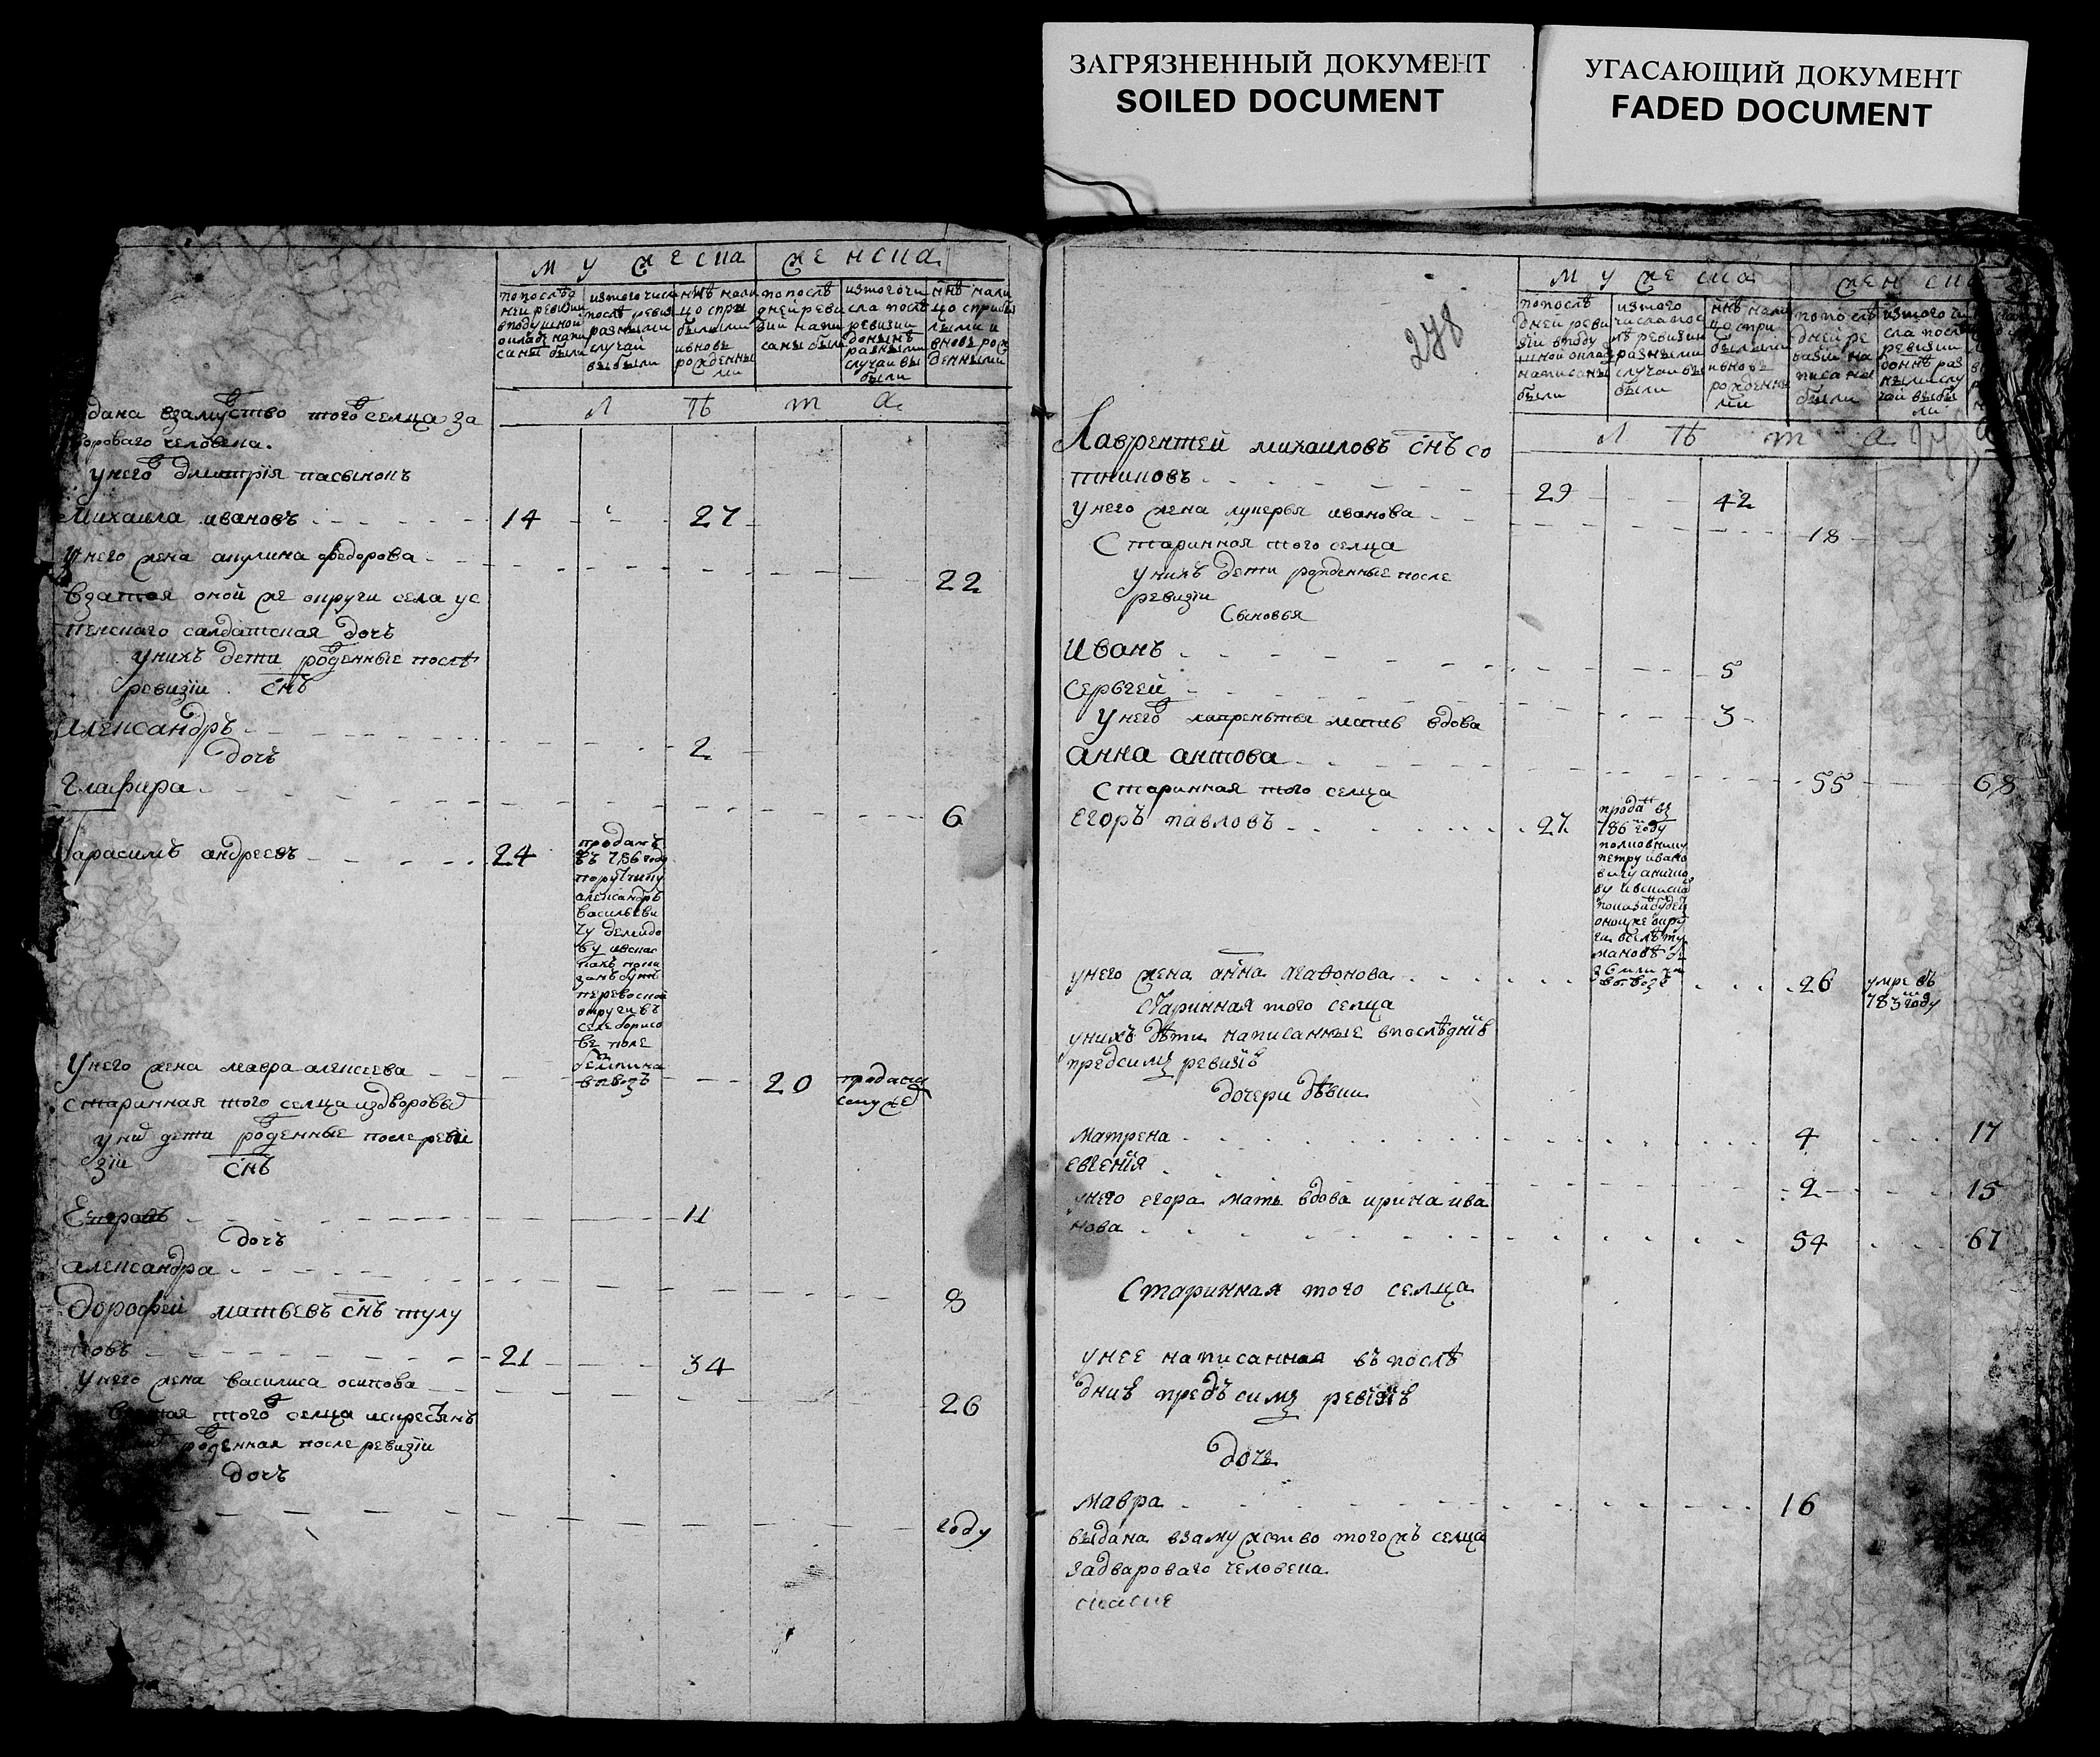 ЗАГРЯЗНЕННЫЙ ДОКУМЕНТ
SOILED DOCUMENT
УГАСАЮЩИЙ ДОКУМЕНТ
FADED DOCUMENT
мужеска женска
попослѣд
ней ревизии
вподушной
окладѣ напи
саны были
изтого числа
послѣ ревизии
разными
случаи
выбыли
ннѣ нали
цо спри
былыми
ивновь
рожденны
ми
попослѣ
дней реви
зии напи
саны были
изтого чи
сла послѣ
ревизии
донынѣ
разными
случаи вы
были
ннѣ нали
цо прибы
лыми и
вновь рож
денными
лѣта
дана взамуство того селца за
дороваго человека.
унего дмитрія пасынокъ
Михаила ивановъ 14 27
унего жена акулина федорова 22
Взятая оной же округи села ус
пенскаго салдатская дочь
унихъ дети роденные послѣ
ревизіи снъ
Александръ 2
дочь
Глафира 6
Гарасимъ андреевъ 24
проданъ
въ 786 году
порутчику
александръ
васильеви
чу демидо
ву
округи въ
селе борисо
ве поле
Унего жена мавра алексеева 20
продана
сну же
старинная того селца издворовы
уни дети роденные после реви
зіи снъ
Егоръ 11
дочь
Александра 8
Дорофей матвевъ снъ тулу
повъ 21 34
Унего жена василиса осипова 26
взятая того селца искресянъ
роденная после ревизіи
дочь
году
278
мужеска женска
попослѣ
дней реви
зіи вподу
шной окла
написаны
были
изтого
числа пос
лѣ ревизии
разными
случаи вы
были
ннѣ нали
цо при
былыми
ивновь
рожденны
ми
попослѣ
дней ре
визіи на
писаны
были
изтого чи
сла послѣ
ревизии
доннѣ раз
ными слу
чаи выбы
ли
лѣта
Лаврентей михаиловъ снъ со
тниковъ 29 42
унего жена лукерья иванова 18
Старинная того селца
унихъ дети рожденные после
ревизіи
Сыновья
Иванъ 5
Сергей 3
унего лаврентья мать вдова
анна антова 55 68
Старинная того селца
Егоръ павловъ 27
проданъ въ
786 году
полковнику
петру ивано
вичу аничко
ву
унего жена анна агафонова 26
умре въ
783 году
Старинная того селца
унихъ дѣти написанные впослѣднiѣ
предсимъ ревизіѣ
дочери дѣвки
Матрена 4 17
евгенія 2 15
унего егора мать вдова ирина ива
нова 54 67
Старинная того селца
унее написанная въ послѣ
дниѣ предъ симъ ревизіѣ
дочь
Мавра 16
выдана взамужство тогожъ селца
задвароваго человека